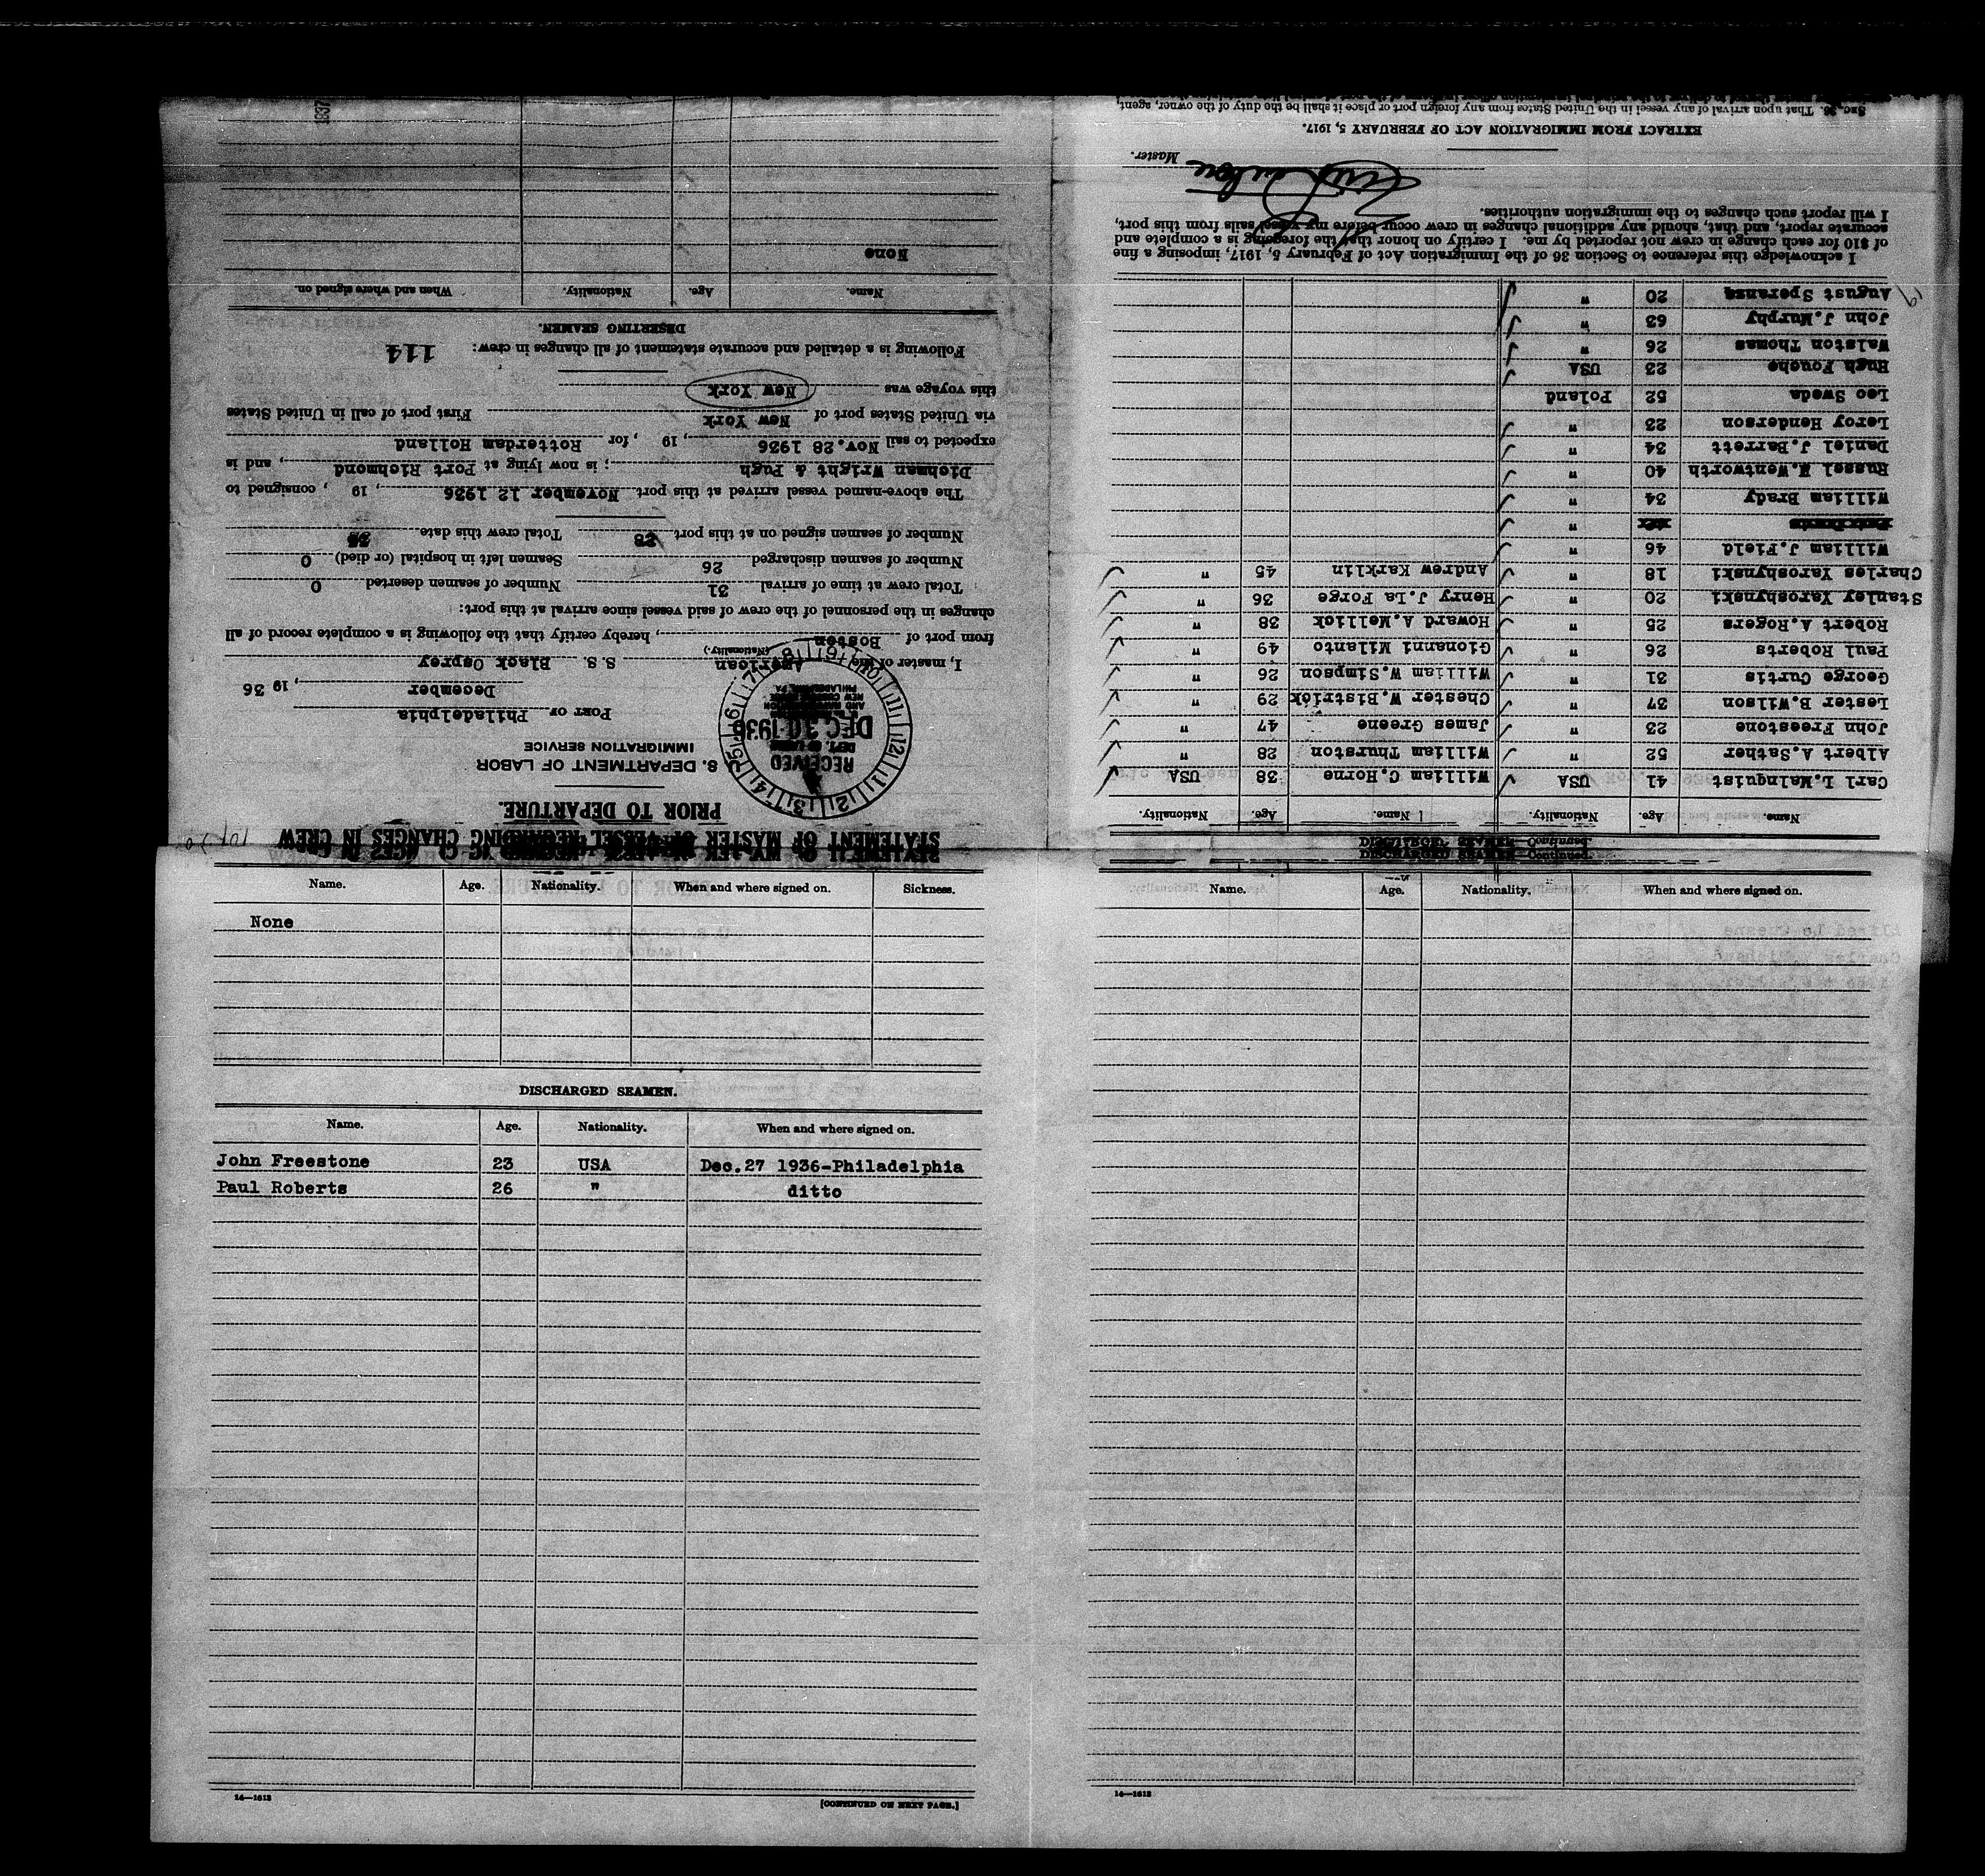 STATEMENT OF MASTER OF VESSEL REGARDING CHANGES IN CREW
PRIOR TO DEPARTURE.
S. DEPARTMENT OF LABOR
IMMIGRATION SERVICE
RECEIVED
DEC 30 1936
PORT OF Philadelphia
December, 19 36
I, master of the American S.S. Black Osprey
(Nationality.)
from port of Boston, hereby certify that the following is a complete record of all
changes in the personnel of the crew of said vessel since arrival at this port:
Total crew at time of arrival 31 Number of seamen deserted 0
Number of seamen discharged 26 Seamen left in hospital (or died) 0
Number of seamen signed on at this port 28 Total crew this date
The above-named vessel arrived at this port November 12 1936, 19 , consigned to
Dichman Wright & Pugh; is now lying at Port Richmond, and is
expected to sail Nov.28 1936, 19 , for Rotterdam Holland
via United States port of New York First port of call in United States
this voyage was New York
Following is a detailed and accurate statement of all changes in crew: 114
DESERTING SEAMEN.
Name. Age. Nationality. When and where signed on.
None
1937
DISCHARGED SEAMEN—Continued.
Name. Age. Nationality. Name. Age. Nationality.
Carl L.Malnquist 41 USA William C.Horne 38 USA
Albert A.Sather 52 " William Thurston 28 "
John Freestone 23 " James Greene 47 "
Lester B.Wilson 37 " Chester W.Bistrick 29 "
George Curtis 31 " William W.Simpson 26 "
Paul Roberts 26 " Gionanni Milanto 49 "
Robert A.Rogers 25 " Howard A.Mellick 38 "
Stanley Yaroshynski 20 " Henry J.La Forge 36 "
Charles Yaroshynski 18 " Andrew Karklin 45 "
William J.Field 46 "
"
William Brady 34 "
Russel W.Wentworth 40 "
Daniel J.Barrett 34 "
Leroy Henderson 23 "
Leo Sweda 52 Poland
Hugh Fouche 23 USA
Walston Thomas 26 "
John J.Murphy 63 "
August Speranza 20 "
I acknowledge this reference to Section 36 of the Immigration Act of February 5, 1917, imposing a fine
of $10 for each change in crew not reported by me. I certify on honor that the foregoing is a complete and
accurate report, and that, should any additional changes in crew occur before my vessel sails from this port,
I will report such changes to the immigration authorities.
Master.
EXTRACT FROM IMMIGRATION ACT OF FEBRUARY 5, 1917.
SEC. 36. That upon arrival of any vessel in the United States from any foreign port or place it shall be the duty of the owner, agent,
Name. Age. Nationality. When and where signed on. Sickness.
None
DISCHARGED SEAMEN.
Name. Age. Nationality. When and where signed on.
John Freestone 23 USA Dec.27 1936-Philadelphia
Paul Roberts 26 " ditto
14—1613 [CONTINUED ON NEXT PAGE.]
DISCHARGED SEAMEN—Continued.
Name. Age. Nationality. When and where signed on.
14—1613